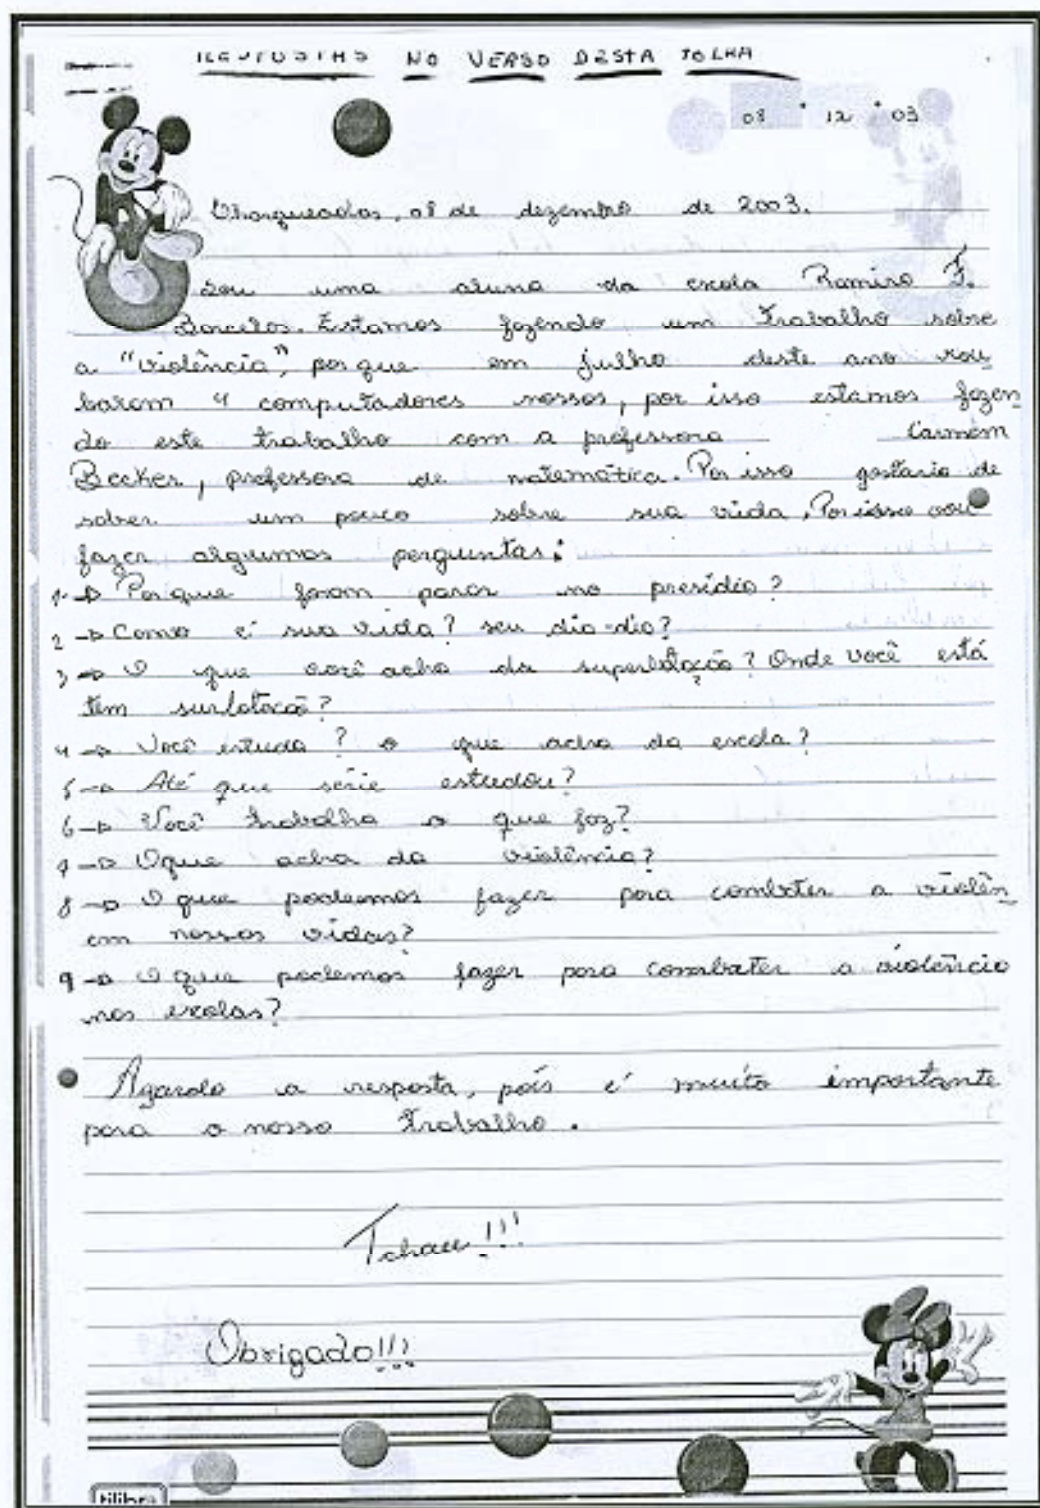 RESPOSTAS NO VERSO DESTA FOLHA
08 12 03
Charqueadas, 08 de dezembro de 2003.
Sou uma aluna da escola Ramiro F.
Barcelos. Estamos fazendo um trabalho sobre
a "violência", porque em julho deste ano rou
baram 4 computadores nossos, por isso estamos fazen
do este trabalho com a professora Carmem
Becker, professora de matemática. Por isso gostaria de
saber um pouco sobre sua vida. Por isso vou
fazer algumas perguntas:
1 → Por que foram parar no presídio?
2 → Como é sua vida? seu dia-dia?
3 → O que você acha da superlotação? Onde você está
tem surlotação?
4 → Você estuda? o que acha da escola?
5 → Até que série estudou?
6 → Você trabalha o que faz?
7 → Oque acha da violência?
8 → O que podemos fazer para combater a violên
em nossas vidas?
9 → O que podemos fazer para combater a violência
nas escolas?
Agardo a resposta, pois é muito importante
para o nosso trabalho.
Tchau!!!
Obrigado!!!
tilibra